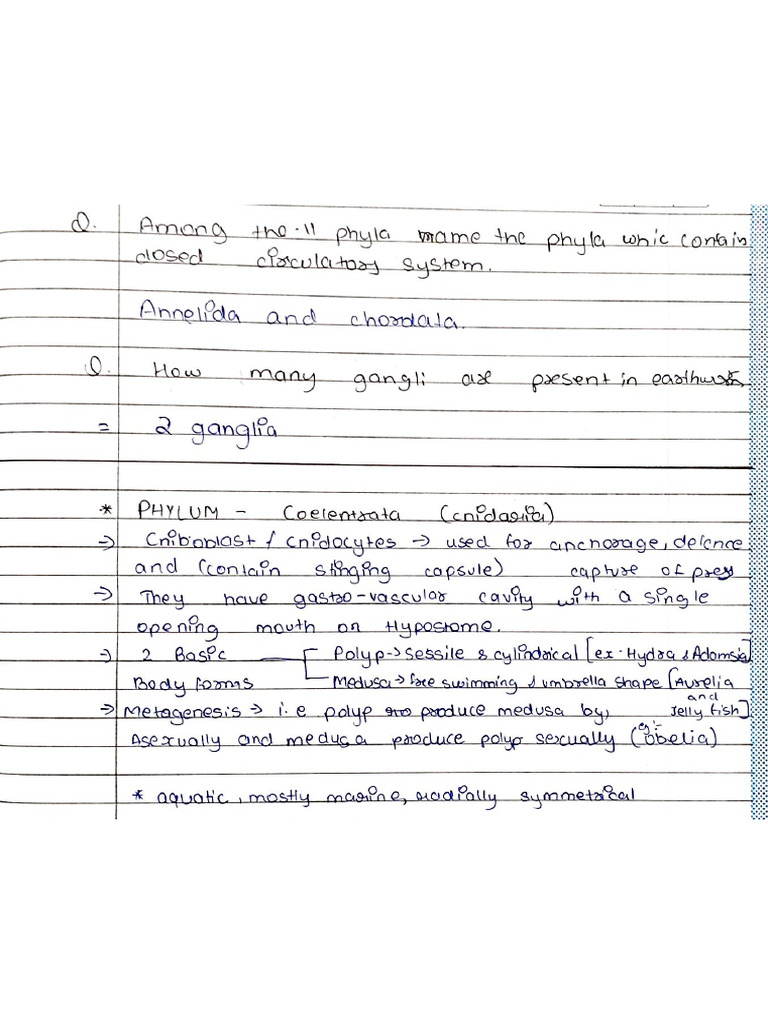 Q. Among the 11 phyla name the phyla whic contain
closed circulatory system.
Annelida and chordata.
Q. How many gangli are present in
= 2 ganglia
* PHYLUM - Coelentrata (cnidaria)
⇒ Cniboblast / Cnidocytes → used for anchorage, defence
and (contain stinging capsule) capture of prey
⇒ They have gastro-vascular cavity with a single
opening mouth on Hypostome.
⇒ 2 Basic Polyp → sessile & cylindrical [ex. Hydra & Adamsia]
Body forms Medusa → free swimming & umbrella shape [Aurelia and Jelly fish]
⇒ Metagenesis → i.e polyp produce medusa by,
Asexually and medusa produce polyp sexually (eg:- obelia)
* aquatic, mostly marine, radially symmetrical